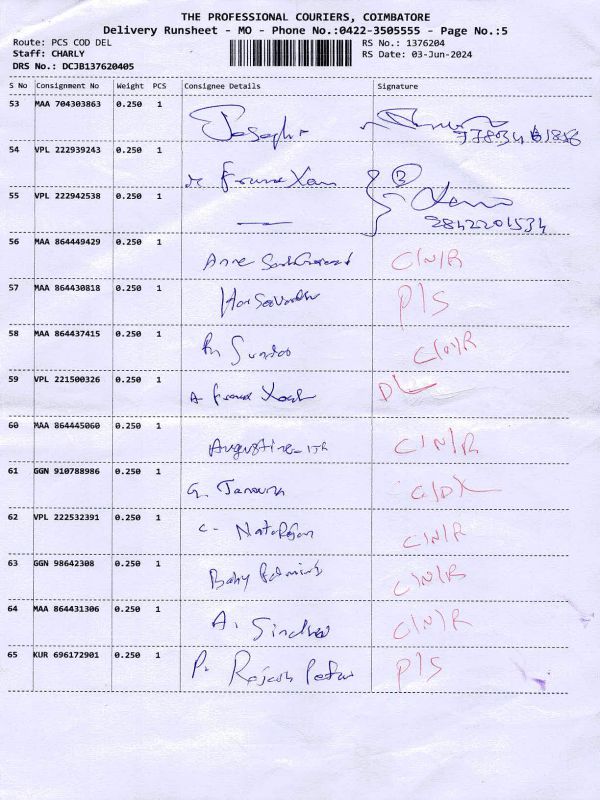 THE PROFESSIONAL COURIERS, COIMBATORE
Delivery Runsheet - MO - Phone No.:0422-3505555 - Page No.:5
Route: PCS COD DEL RS No.: 1376204
Staff: CHARLY RS Date: 03-Jun-2024
DRS No.: DCJB137620405
S No Consignment No Weight PCS Consignee Details Signature
53 MAA 704303863 0.250 1
Joseph
54 VPL 222939243 0.250 1
55 VPL 222942538 0.250 1
2842201534
56 MAA 864449429 0.250 1
Anne C/N/R
57 MAA 864430818 0.250 1
P/S
58 MAA 864437415 0.250 1
C/N/R
59 VPL 221500326 0.250 1
DL
60 MAA 864445060 0.250 1
Augustine C/N/R
61 GGN 910788986 0.250 1
G.
62 VPL 222532391 0.250 1
C. Natarajan C/N/R
63 GGN 98642308 0.250 1
Baby C/N/R
64 MAA 864431306 0.250 1
A. C/N/R
65 KUR 696172901 0.250 1
P. Rajesh P/S